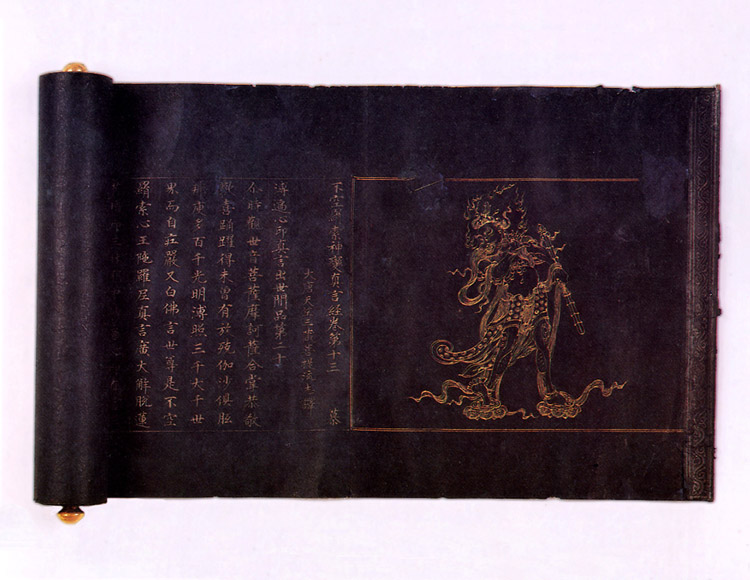 不空羂索神變真言經卷第十三　慕
大唐天竺三藏菩提流志譯
溥遍心印真言出世間品第二十
尒時觀世音菩薩摩訶薩合掌恭敬
歡喜踊躍得未曾有於殑伽沙俱胝
那庾多百千光明溥照三千大千世
界為自莊嚴又白佛言世尊是不空
羂索心王陁羅尼真言廣大解脫蓮